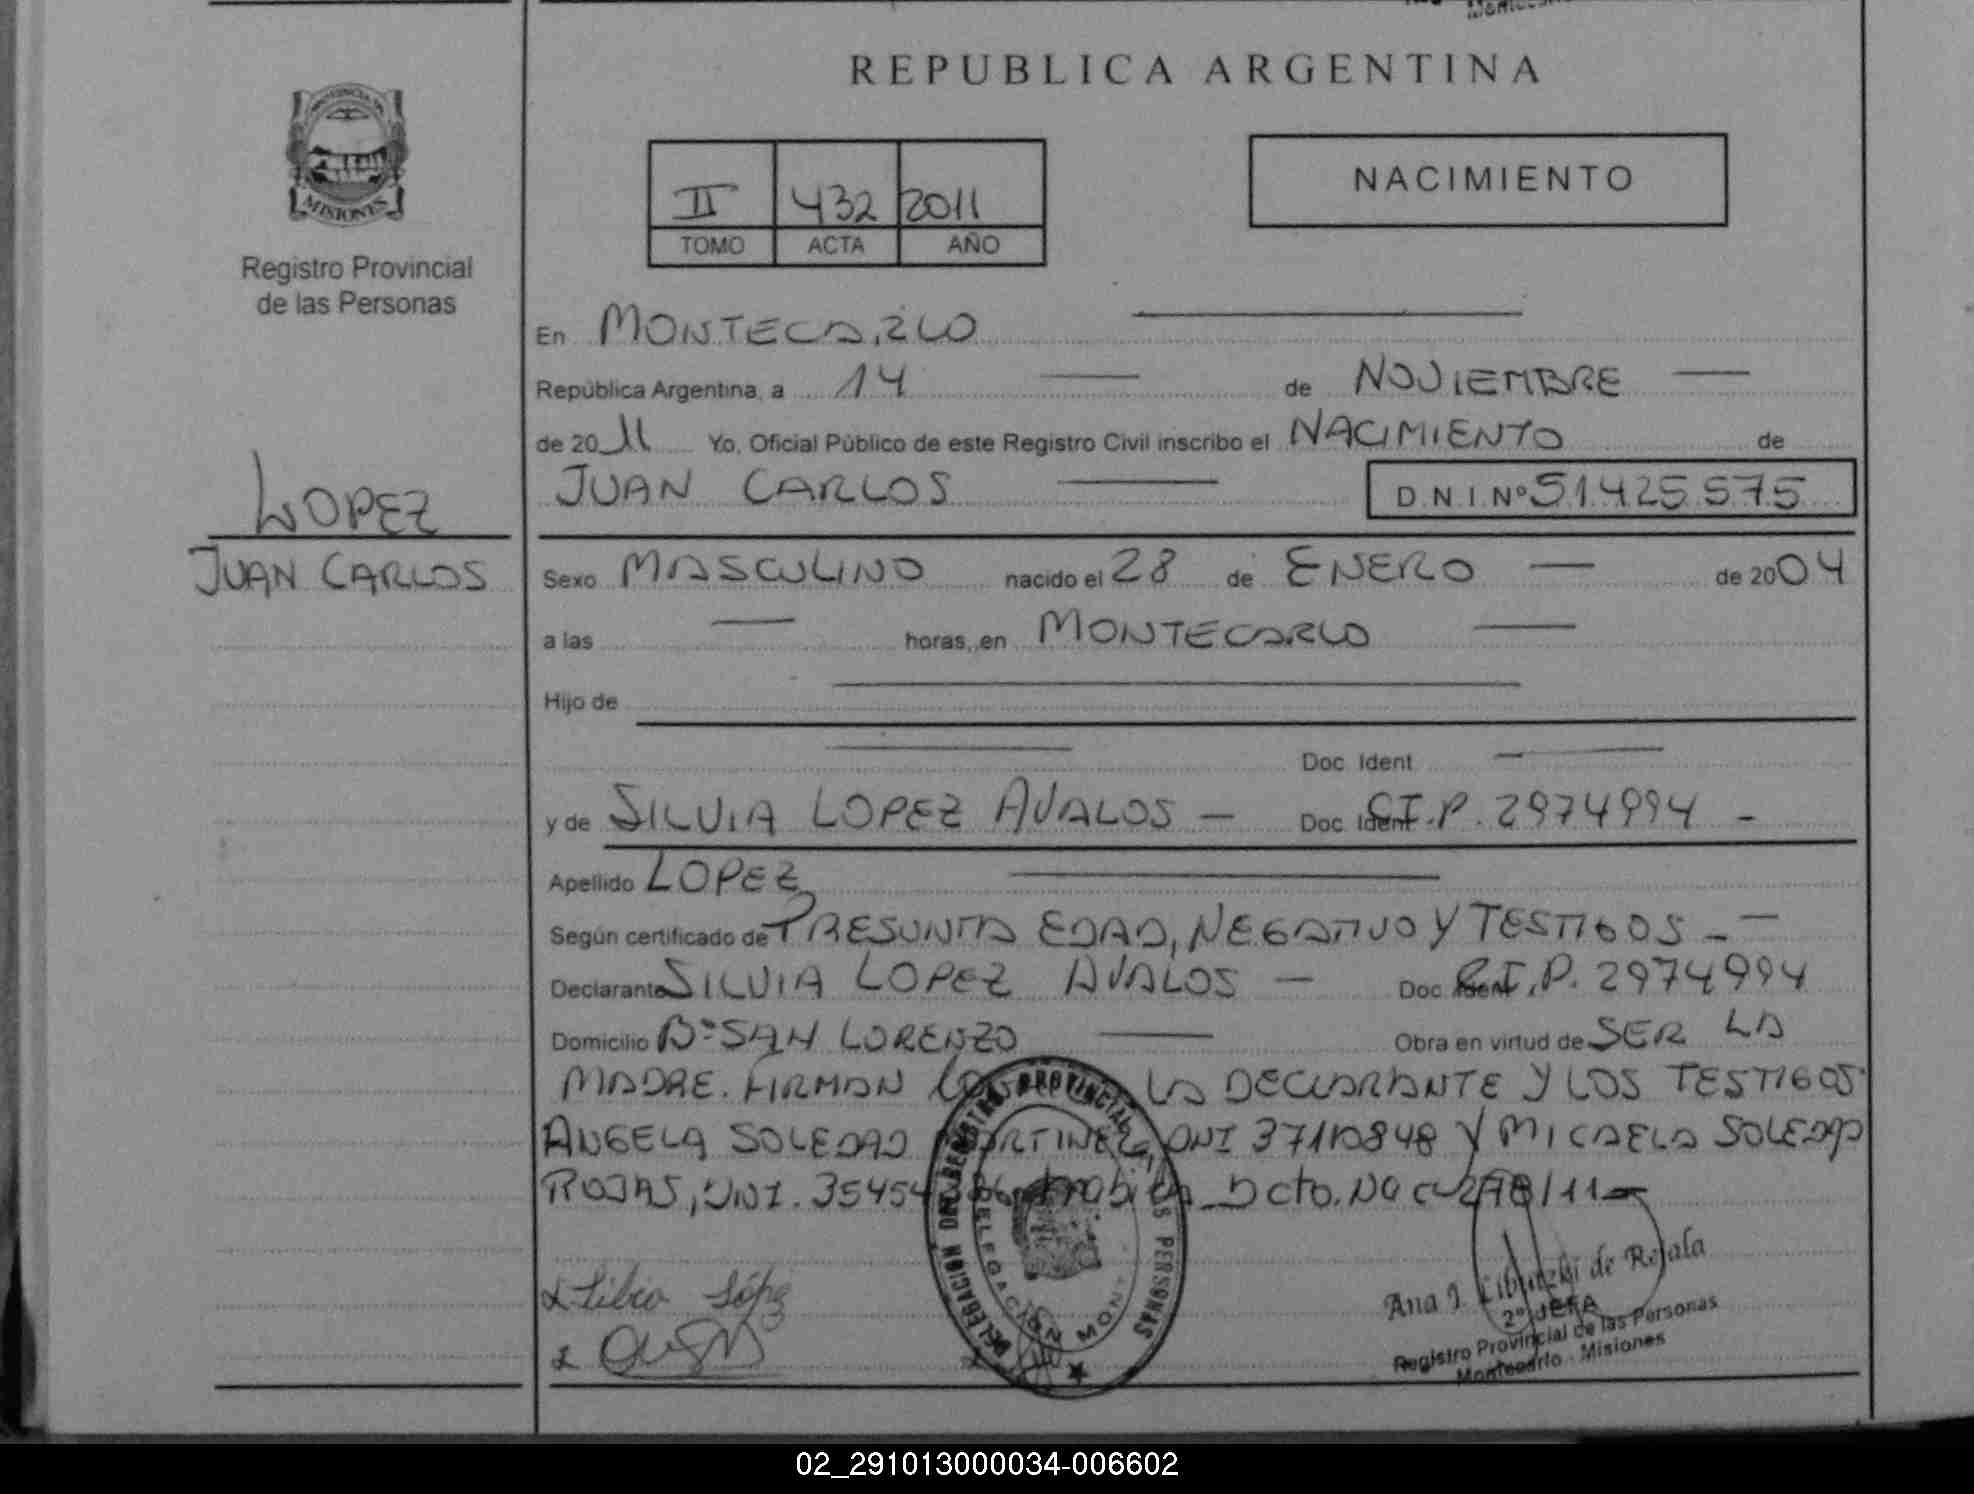 REPUBLICA ARGENTINA
PROVINCIA DE
MISIONES
Registro Provincial
de las Personas
II 432 2011
TOMO ACTA AÑO
NACIMIENTO
En MONTECARLO
República Argentina, a 14 de NOVIEMBRE
de 2011 Yo, Oficial Público de este Registro Civil inscribo el NACIMIENTO de
JUAN CARLOS D.N.I.Nº 51.425.575
LOPEZ
JUAN CARLOS
Sexo MASCULINO nacido el 28 de ENERO de 2004
a las horas, en MONTECARLO
Hijo de
Doc. Ident
y de SILVIA LOPEZ AVALOS - Doc. Ident C.I.P. 2974994 -
Apellido LOPEZ
Según certificado de PRESUNTA EDAD, NEGATIVO Y TESTIGOS -
Declarante SILVIA LOPEZ AVALOS - Doc. Ident C.I.P. 2974994
Domicilio Bº SAN LORENZO Obra en virtud de SER LA
MADRE. FIRMAN LA DECLARANTE Y LOS TESTIGOS
ANGELA SOLEDAD MARTINEZ, DNI 37110848 Y MICAELA SOLEDAD
ROJAS, DNI. 35454 Dcto. Nac 278/11
DELEGACION DEL REGISTRO PROVINCIAL DE LAS PERSONAS
DELEGACION MONT
Ana I. de Rojala
2º JEFA
Registro Provincial de las Personas
Montecarlo - Misiones
02_291013000034-006602